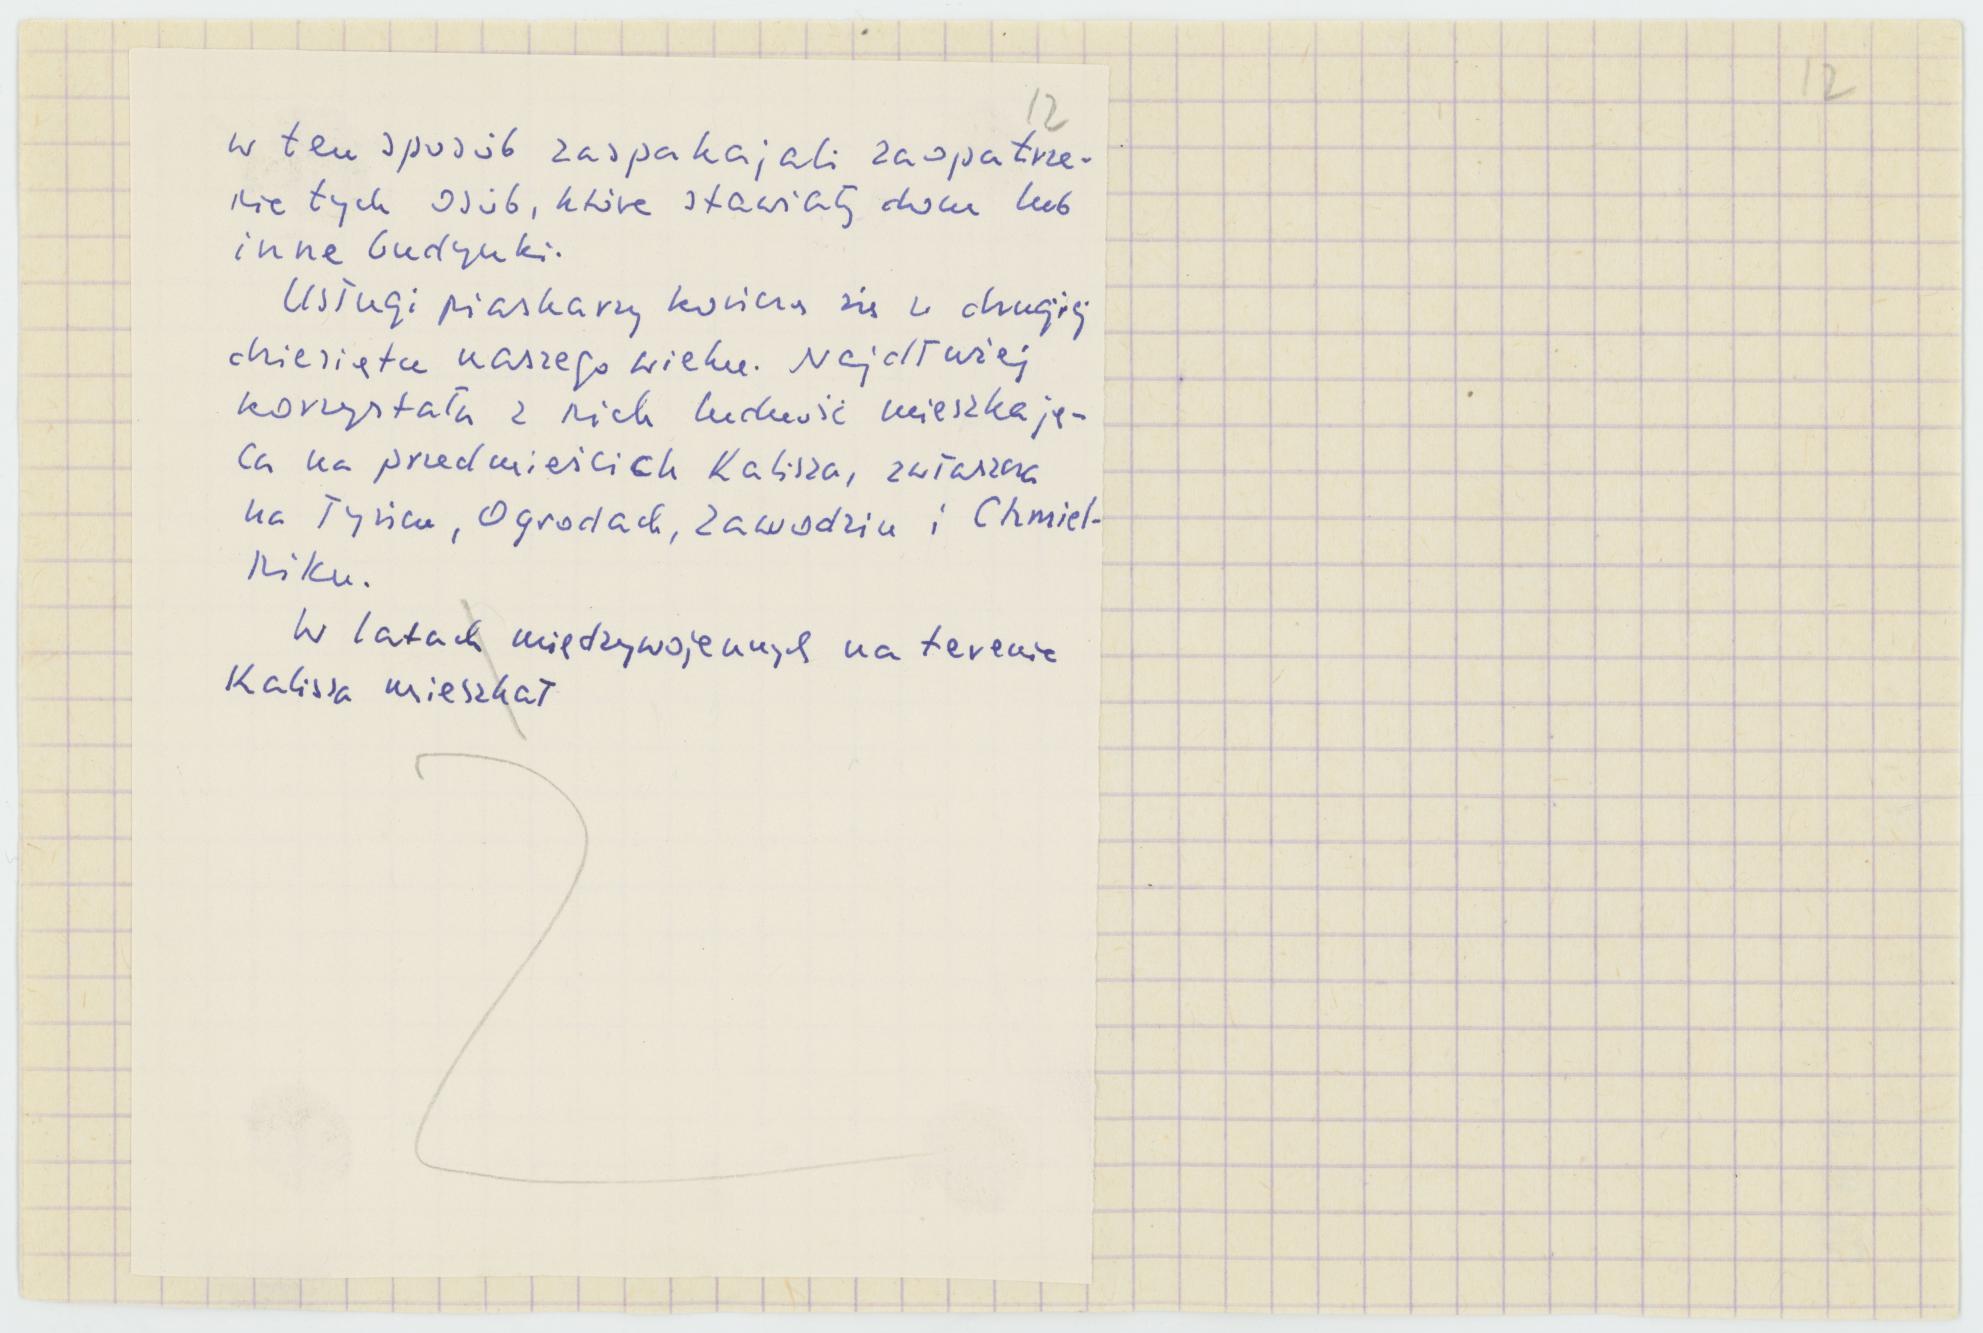 12
12
w ten sposób zaspakajali zaopatrze-
nie tych osób, które stawiały dom lub
inne budynki.
Usługi piaskarzy kończą się w drugiej
dziesiątce naszego wieku. Najdłużej
korzystała z nich ludność mieszkają-
ca na przedmieściach Kalisza, zwłaszcza
na Tyńcu, Ogrodach, Zawodziu i Chmiel-
niku.
W latach międzywojennych na terenie
Kalisza mieszkał